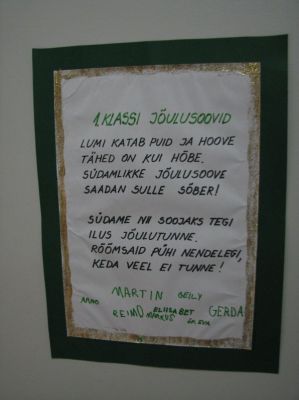 1. KLASSI JÕULUSOOVID
LUMI KATAB PUID JA HOOVE
TÄHED ON KUI HÕBE.
SÜDAMLIKKE JÕULUSOOVE
SAADAN SULLE SÕBER!
SÜDAME NII SOOJAKS TEGI
ILUS JÕULUTUNNE.
RÕÕMSAID PÜHI NENDELEGI,
KEDA VEEL EI TUNNE!
MARTIN GEILY
ARNO REIMO ELIISABET GERDA
MARKUS